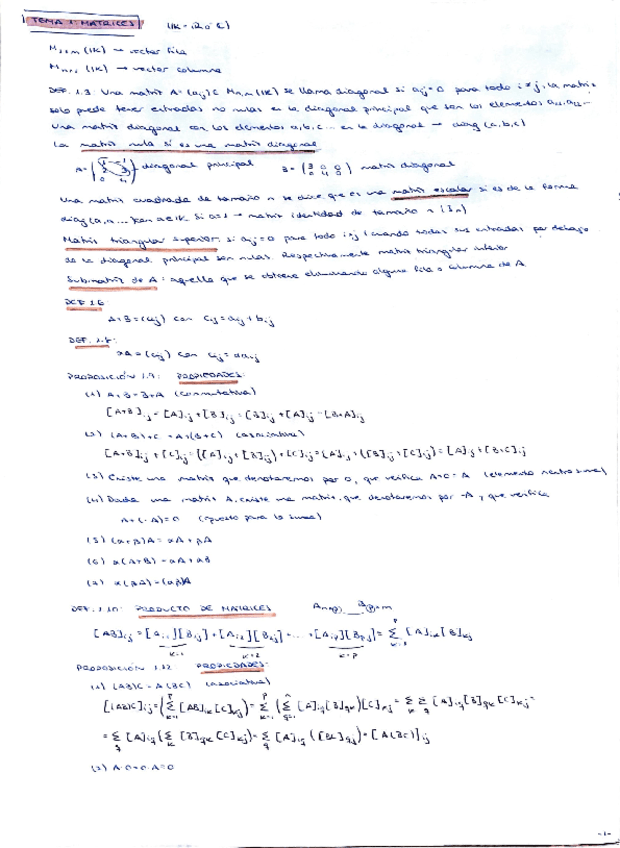 TEMA 1: MATRICES (IK = R o C)
M1xm (IK) → vector fila
Mnx1 (IK) → vector columna
DEF. 1.3 Una matriz A=(aij)∈ Mn,m(IK) se llama diagonal si aij=0 para todo i≠j, la matriz
solo puede tener entradas no nulas en la diagonal principal que son los elementos a11,a22...
Una matriz diagonal con los elementos a,b,c... en la diagonal → diag (a,b,c)
La matriz nula sí es una matriz diagonal
A= diagonal principal B= (3 0 0 / 0 4 0) matriz diagonal
Una matriz cuadrada de tamaño n se dice que es una matriz escalar si es de la forma
diag(a,a...) con a∈IK. Si a=1 → matriz identidad de tamaño n (In)
Matriz triangular superior: si aij=0 para todo i>j (cuando todas sus entradas por debajo
de la diagonal principal son nulas. Respectivamente matriz triangular inferior
Submatriz de A: aquella que se obtiene eliminando alguna fila o columna de A
DEF 1.6
A+B=(cij) con cij=aij+bij
DEF. 1.8:
αA=(cij) con cij=αaij
PROPOSICIÓN 1.9: PROPIEDADES:
(1) A+B=B+A (conmutativa)
[A+B]ij=[A]ij+[B]ij=[B]ij+[A]ij=[B+A]ij
(2) (A+B)+C=A+(B+C) (asociativa)
[A+B]ij+[C]ij=([A]ij+[B]ij)+[C]ij=[A]ij+([B]ij+[C]ij)=[A]ij+[B+C]ij
(3) Existe una matriz que denotaremos por 0, que verifica A+0=A (elemento neutro suma)
(4) Dada una matriz A, existe una matriz, que denotaremos por -A y que verifica
A+(-A)=0 (opuesto para la suma)
(5) (α+β)A=αA+βA
(6) α(A+B)=αA+αB
(7) α(βA)=(αβ)A
DEF. 1.10: PRODUCTO DE MATRICES Anxp Bpxm
[AB]ij=[Ai1][B1j]+[Ai2][B2j]+...+[Aip][Bpj]=∑ [A]ik[B]kj
k=1 k=2 k=p
PROPOSICIÓN 1.12 PROPIEDADES:
(1) (AB)C=A(BC) (asociativa)
[(AB)C]ij=(∑ [AB]ik[C]kj)=∑ (∑ [A]iq[B]qk)[C]kj=∑ ∑ [A]iq[B]qk[C]kj=
=∑ [A]iq(∑ [B]qk[C]kj)=∑ [A]iq([BC]qj)=[A(BC)]ij
(2) A·0=0·A=0
-1-